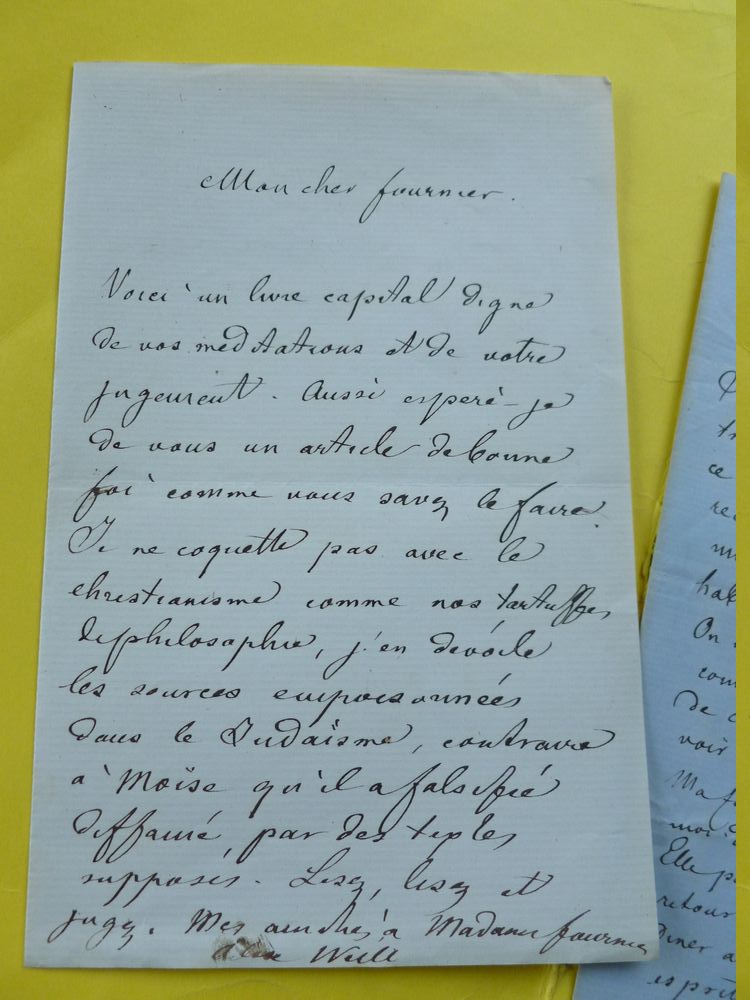 Mon cher fournier.
Voici un livre capital digne
de vos méditations et de votre
jugement. Aussi esperè-je
de vous un article de bonne
foi comme vous savez le faire.
Je ne coquette pas avec le
christianisme comme nos tartuffes
de philosophie, j'en dévoile
les sources empoisonnées
dans le Judaïsme, contraire
à Moïse qu'il a falsifié
diffamé, par des textes
supposés. Lisez, lisez et
jugez. Mes amitiés à Madame fournier
Alex Weill
ce
On
de
voir
Ma
moi
Elle
retour
Diner a
esprit